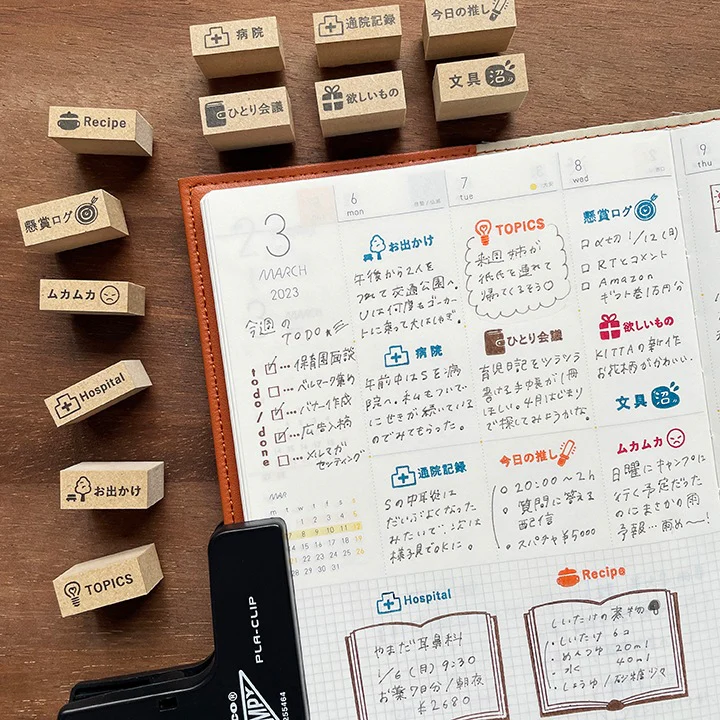 病院
通院記録
今日の推し
ひとり会議
欲しいもの
文具沼
Recipe
懸賞ログ
ムカムカ
Hospital
お出かけ
TOPICS
3
MARCH
2023
今週の
TODO
todo/done
保育園面談
ベルマーク集め
バナー作成
広告入稿
メルマガ
センティング
MAR
6
mon
お出かけ
午後から2人を
つれて交通公園へ。
Uは何度もゴーカー
トに乗って大はしゃぎ。
病院
午前中はSを病
院へ。私もついで
にせきが続いている
のでみてもらった。
通院記録
Sの中耳炎は
だいぶよくなった
みたいで、次は
様子見でOKに。
7
tue
TOPICS
来週 姉が
祇氏を連れて
帰ってくるそう
ひとり会議
育児日記をツラツラ
書ける手帳が1冊
ほしい。4月はじまり
で探してみようかな。
今日の推し
20:00〜2h
質問に答える
配信
スパチャ¥5000
8
wed
懸賞ログ
αセカ 1/12(月)
RTとコメント
Amazon
ギフト巻1万円分
欲しいもの
KITTAの新作
お花柄がかわいい。
文具沼
ムカムカ
日曜にキャンプに
行く予定だった
のにまさかの雨
予報…雨め〜!
9
thu
Hospital
やまだ耳鼻科
1/6(月)9:30
お薬7日分/朝夜
¥2680
Recipe
しいたけの煮物
しいたけ 6コ
めんつゆ 20ml
水 40ml
しょうゆ/砂糖少々
PLA-CLIP
255464